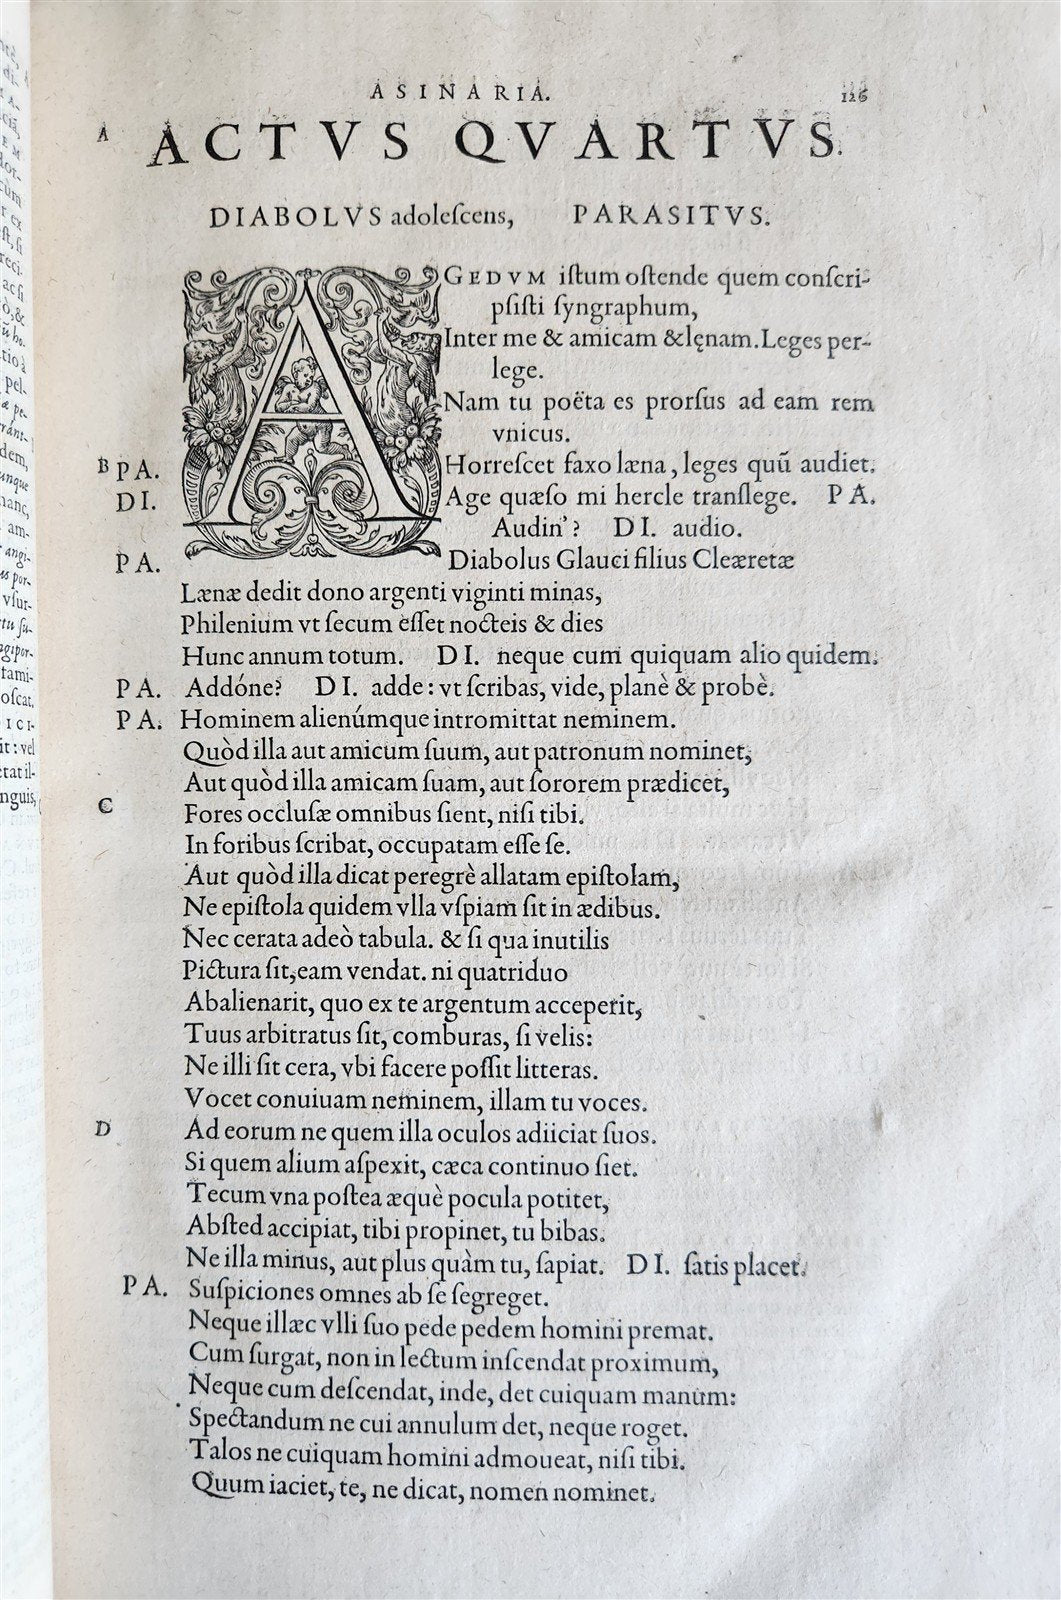 ASINARIA. 126
A ACTVS QVARTVS.
DIABOLVS adoleſcens, PARASITVS.
AGEDVM iſtum oſtende quem conſcri-
pſiſti ſyngraphum,
Inter me & amicam & lęnam. Leges per-
lege.
Nam tu poëta es prorſus ad eam rem
vnicus.
B PA. Horreſcet faxo læna, leges quũ audiet.
DI. Age quæſo mi hercle tranſlege. PA.
Audin'? DI. audio.
PA. Diabolus Glauci filius Cleæretæ
Lænæ dedit dono argenti viginti minas,
Philenium vt ſecum eſſet nocteis & dies
Hunc annum totum. DI. neque cum quiquam alio quidem.
PA. Addóne? DI. adde: vt ſcribas, vide, planè & probè.
PA. Hominem alienúmque intromittat neminem.
Quòd illa aut amicum ſuum, aut patronum nominet,
Aut quòd illa amicam ſuam, aut ſororem prædicet,
C Fores occluſæ omnibus ſient, niſi tibi.
In foribus ſcribat, occupatam eſſe ſe.
Aut quòd illa dicat peregrè allatam epiſtolam,
Ne epiſtola quidem vlla vſpiam ſit in ædibus.
Nec cerata adeò tabula. & ſi qua inutilis
Pictura ſit, eam vendat. ni quatriduo
Abalienarit, quo ex te argentum acceperit,
Tuus arbitratus ſit, comburas, ſi velis:
Ne illi ſit cera, vbi facere poſſit litteras.
Vocet conuiuam neminem, illam tu voces.
D Ad eorum ne quem illa oculos adiiciat ſuos.
Si quem alium aſpexit, cæca continuo ſiet.
Tecum vna poſtea æquè pocula potitet,
Abſted accipiat, tibi propinet, tu bibas.
Ne illa minus, aut plus quàm tu, ſapiat. DI. ſatis placet.
PA. Suſpiciones omnes ab ſe ſegreget.
Neque illæc vlli ſuo pede pedem homini premat.
Cum ſurgat, non in lectum inſcendat proximum,
Neque cum deſcendat, inde, det cuiquam manum:
Spectandum ne cui annulum det, neque roget.
Talos ne cuiquam homini admoueat, niſi tibi.
Quum iaciet, te, ne dicat, nomen nominet.